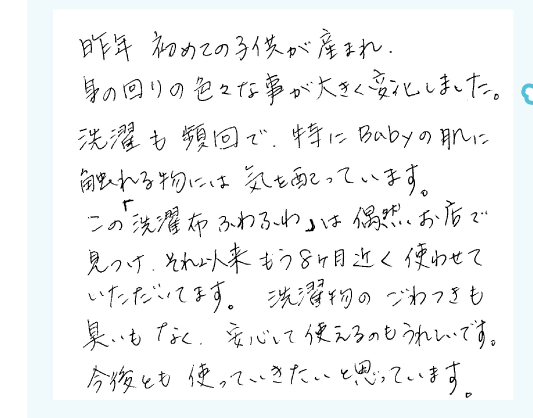 昨年 初めての子供が産まれ、
身の回りの色々な事が大きく変化しました。
洗濯も頻回で、特にBabyの肌に
触れる物には気を配っています。
この「洗濯布ふわふわ」は偶然お店で
見つけ、それ以来もう8ヶ月近く使わせて
いただいてます。 洗濯物のごわつきも
臭いもなく、安心して使えるのもうれしいです。
今後とも使っていきたいと思っています。